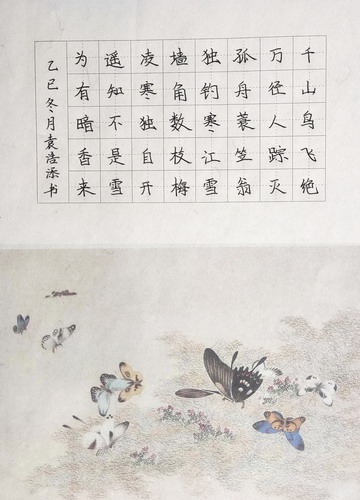 千山鸟飞绝
万径人踪灭
孤舟蓑笠翁
独钓寒江雪
墙角数枝梅
凌寒独自开
遥知不是雪
为有暗香来
乙巳冬月袁浩添书